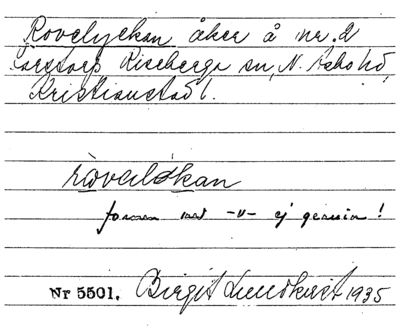 Rovelyckan åker å nr. 2
Färstorp Riseberga sn, N. Åsbo hd,
Kristianstad l.
ròvəlökan
formen med -v- ej genuin!
Nr 5501. Birgit Lundkvist 1935